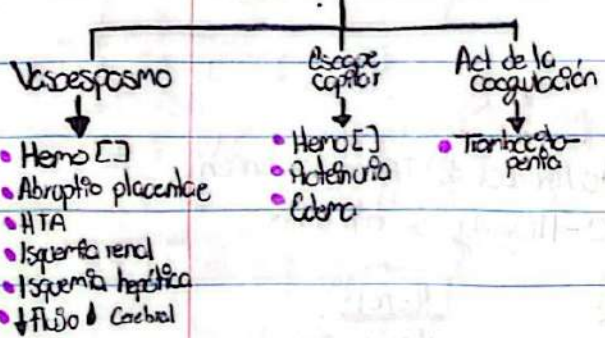 Vasoespasmo
• Hemo []
• Abruptio placentae
• HTA
• Isquemia renal
• Isquemia hepática
• ↓ flujo Cerebral
Escape
capilar
• Hemo []
• Proteinuria
• Edema
Act de la
coagulación
• Trombocito-
penia